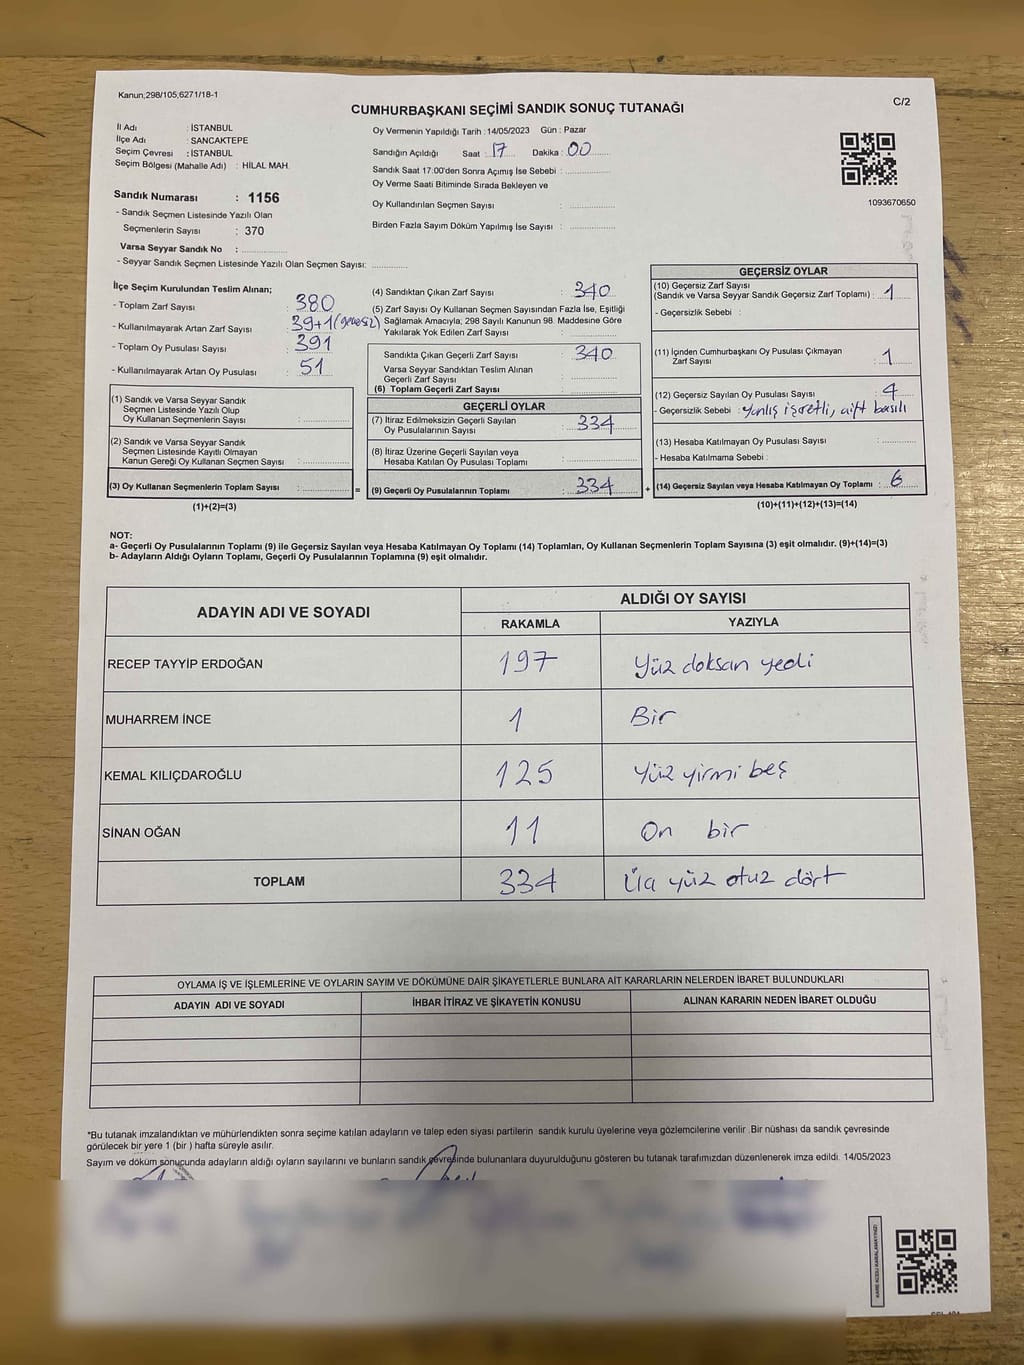 Kanun;298/105,6271/18-1
CUMHURBAŞKANI SEÇİMİ SANDIK SONUÇ TUTANAĞI
C/2
İl Adı : İSTANBUL
İlçe Adı : SANCAKTEPE
Seçim Çevresi : İSTANBUL
Seçim Bölgesi (Mahalle Adı) : HİLAL MAH.
Sandık Numarası : 1156
- Sandık Seçmen Listesinde Yazılı Olan
Seçmenlerin Sayısı : 370
Varsa Seyyar Sandık No :
- Seyyar Sandık Seçmen Listesinde Yazılı Olan Seçmen Sayısı:
Oy Vermenin Yapıldığı Tarih : 14/05/2023 Gün : Pazar
Sandığın Açıldığı Saat : 17 Dakika : 00
Sandık Saat 17:00'den Sonra Açımış İse Sebebi :
Oy Verme Saati Bitiminde Sırada Bekleyen ve
Oy Kullandırılan Seçmen Sayısı :
Birden Fazla Sayım Döküm Yapılmış İse Sayısı :
1093670650
İlçe Seçim Kurulundan Teslim Alınan;
- Toplam Zarf Sayısı : 380
- Kullanılmayarak Artan Zarf Sayısı : 39+1 (geçersiz)
- Toplam Oy Pusulası Sayısı : 391
- Kullanılmayarak Artan Oy Pusulası : 51
(1) Sandık ve Varsa Seyyar Sandık
Seçmen Listesinde Yazılı Olup
Oy Kullanan Seçmenlerin Sayısı :
(2) Sandık ve Varsa Seyyar Sandık
Seçmen Listesinde Kayıtlı Olmayan
Kanun Gereği Oy Kullanan Seçmen Sayısı :
(3) Oy Kullanan Seçmenlerin Toplam Sayısı : =
(1)+(2)=(3)
(4) Sandıktan Çıkan Zarf Sayısı : 340
(5) Zarf Sayısı Oy Kullanan Seçmen Sayısından Fazla İse, Eşitliği
Sağlamak Amacıyla; 298 Sayılı Kanunun 98. Maddesine Göre
Yakılarak Yok Edilen Zarf Sayısı :
Sandıkta Çıkan Geçerli Zarf Sayısı : 340
Varsa Seyyar Sandıktan Teslim Alınan
Geçerli Zarf Sayısı :
(6) Toplam Geçerli Zarf Sayısı
GEÇERLİ OYLAR
(7) İtiraz Edilmeksizin Geçerli Sayılan
Oy Pusulalarının Sayısı : 334
(8) İtiraz Üzerine Geçerli Sayılan veya
Hesaba Katılan Oy Pusulası Toplamı :
(9) Geçerli Oy Pusulalarının Toplamı : 334 +
GEÇERSİZ OYLAR
(10) Geçersiz Zarf Sayısı
(Sandık ve Varsa Seyyar Sandık Geçersiz Zarf Toplamı) : 1
- Geçersizlik Sebebi :
(11) İçinden Cumhurbaşkanı Oy Pusulası Çıkmayan
Zarf Sayısı : 1
(12) Geçersiz Sayılan Oy Pusulası Sayısı : 4
- Geçersizlik Sebebi : Yanlış işaretli, çift basılı
(13) Hesaba Katılmayan Oy Pusulası Sayısı :
- Hesaba Katılmama Sebebi :
(14) Geçersiz Sayılan veya Hesaba Katılmayan Oy Toplamı : 6
(10)+(11)+(12)+(13)=(14)
NOT:
a- Geçerli Oy Pusulalarının Toplamı (9) ile Geçersiz Sayılan veya Hesaba Katılmayan Oy Toplamı (14) Toplamları, Oy Kullanan Seçmenlerin Toplam Sayısına (3) eşit olmalıdır. (9)+(14)=(3)
b- Adayların Aldığı Oyların Toplamı, Geçerli Oy Pusulalarının Toplamına (9) eşit olmalıdır.
ADAYIN ADI VE SOYADI
ALDIĞI OY SAYISI
RAKAMLA YAZIYLA
RECEP TAYYİP ERDOĞAN 197 Yüz doksan yedi
MUHARREM İNCE 1 Bir
KEMAL KILIÇDAROĞLU 125 Yüz yirmi beş
SİNAN OĞAN 11 On bir
TOPLAM 334 Üç yüz otuz dört
OYLAMA İŞ VE İŞLEMLERİNE VE OYLARIN SAYIM VE DÖKÜMÜNE DAİR ŞİKAYETLERLE BUNLARA AİT KARARLARIN NELERDEN İBARET BULUNDUKLARI
ADAYIN ADI VE SOYADI İHBAR İTİRAZ VE ŞİKAYETİN KONUSU ALINAN KARARIN NEDEN İBARET OLDUĞU
*Bu tutanak imzalandıktan ve mühürlendikten sonra seçime katılan adayların ve talep eden siyasi partilerin sandık kurulu üyelerine veya gözlemcilerine verilir .Bir nüshası da sandık çevresinde
görülecek bir yere 1 (bir ) hafta süreyle asılır.
Sayım ve döküm sonucunda adayların aldığı oyların sayılarını ve bunların sandık çevresinde bulunanlara duyurulduğunu gösteren bu tutanak tarafımızdan düzenlenerek imza edildi. 14/05/2023
KARE KODU KARALAMAYINIZ!